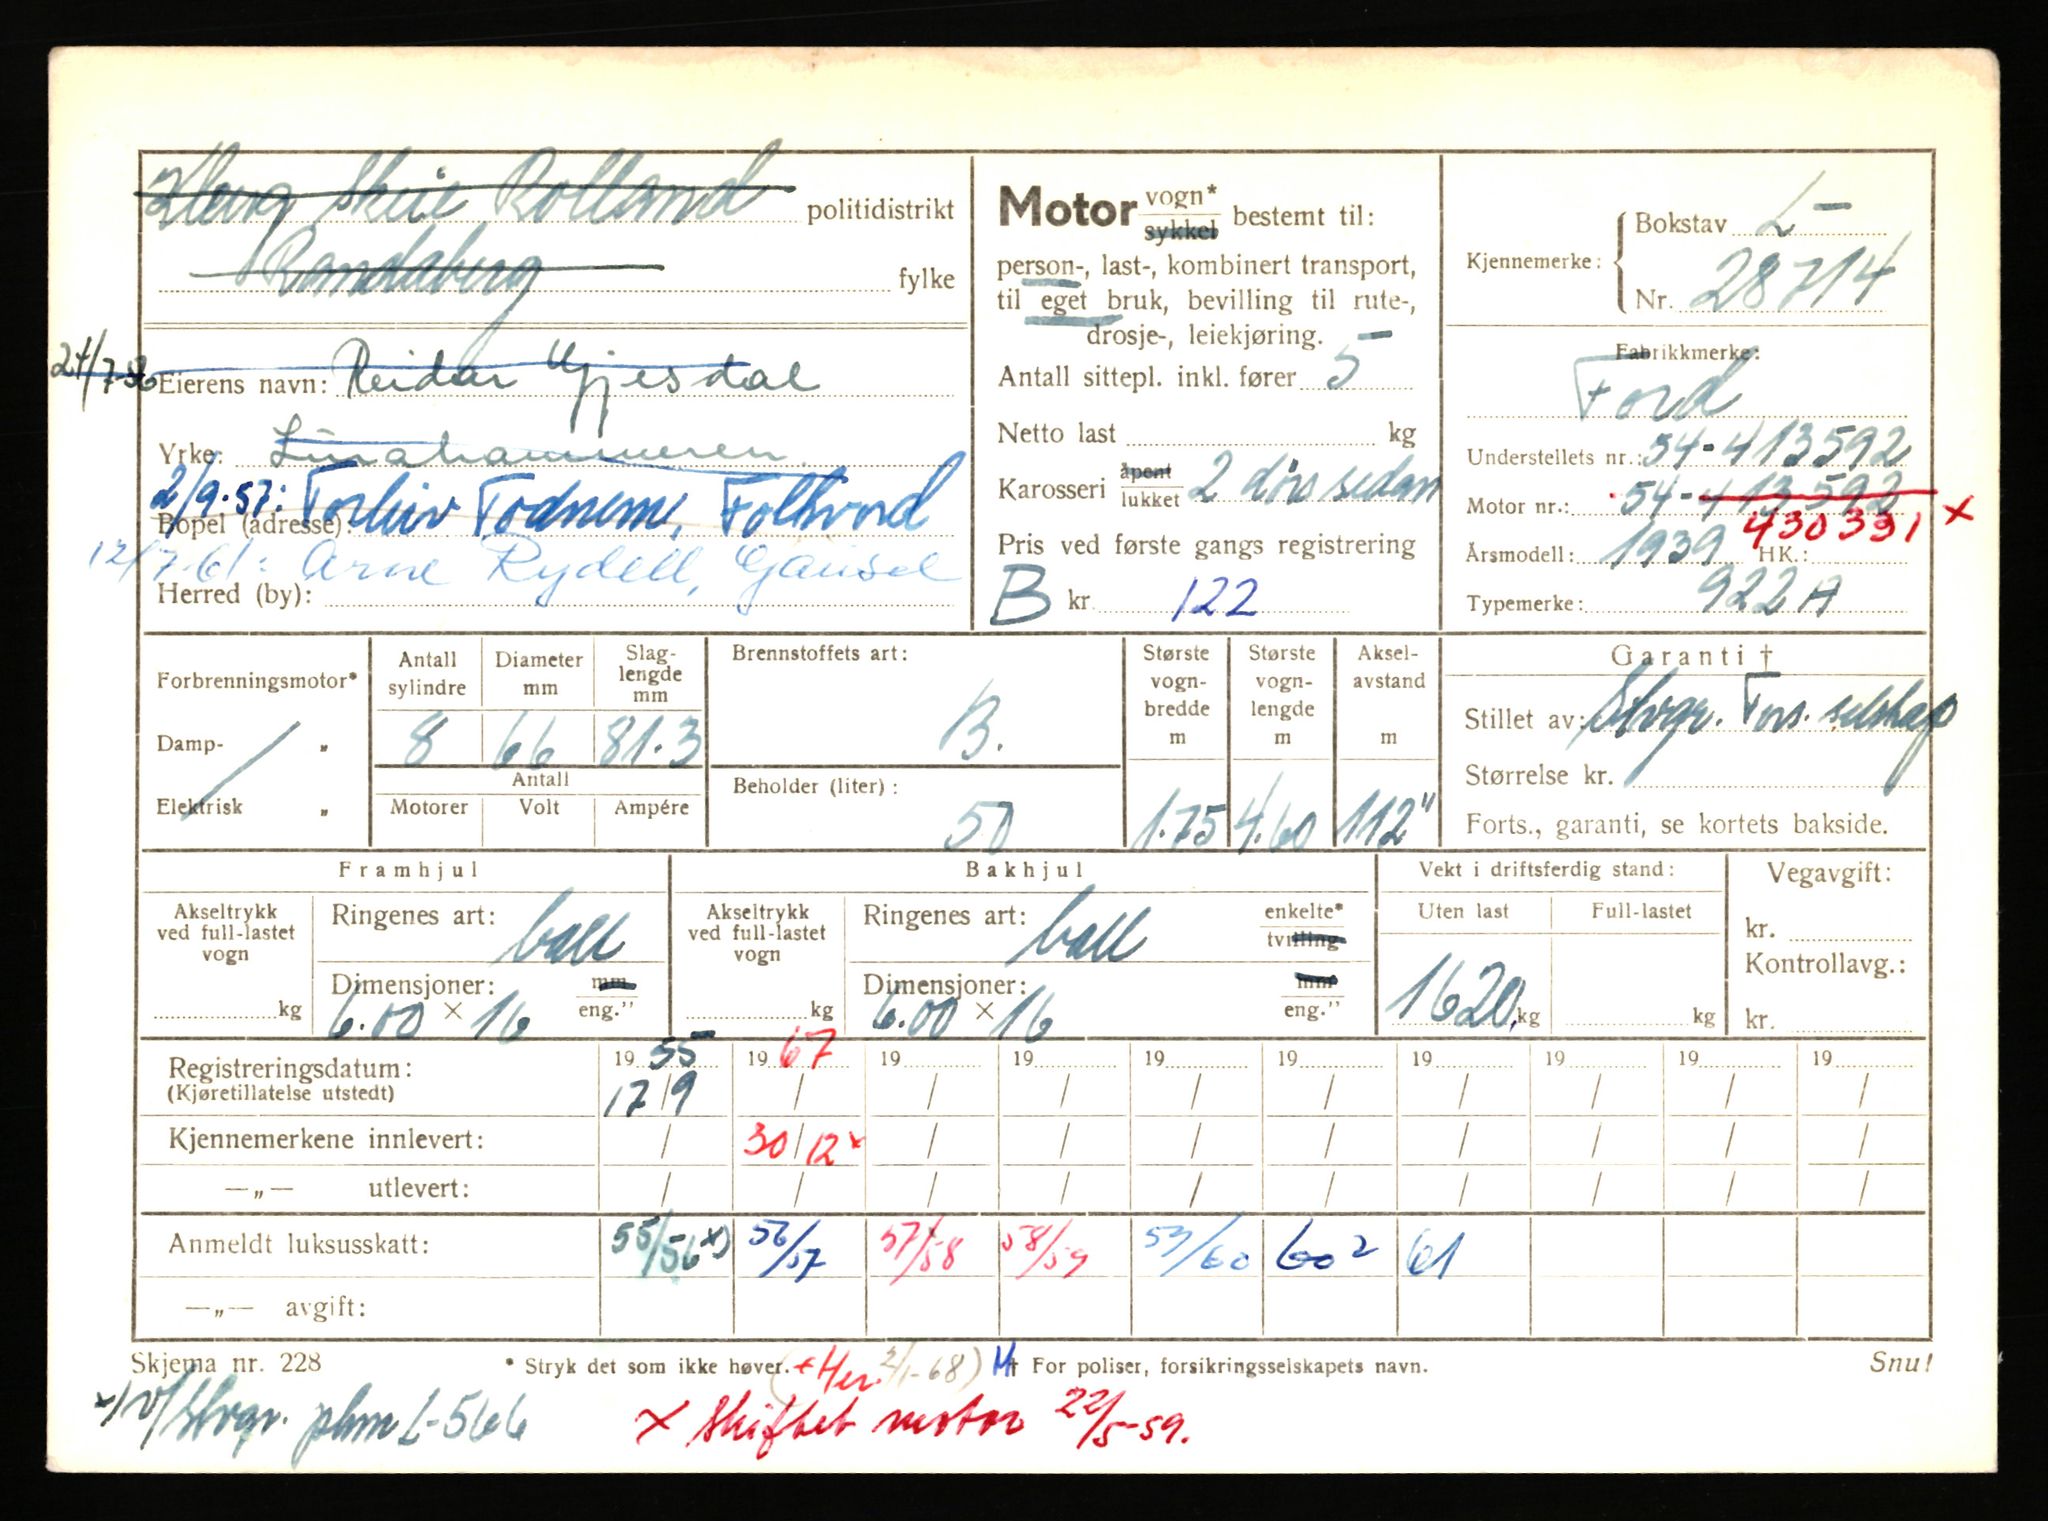 Rolland politidistrikt
Randaberg fylke
24/7-56 Eierens navn: Reidar Gjesdal
Yrke:
2/9-57: Torleiv Todnem, Folkvord
Bopel (adresse):
12/7-61: Arne Rydell, Gausel
Herred (by):
Motor vogn* sykkel bestemt til:
person-, last-, kombinert transport,
til eget bruk, bevilling til rute-,
drosje-, leiekjøring.
Antall sittepl. inkl. fører 5
Netto last kg
Karosseri åpent lukket 2 dørs sedan
Pris ved første gangs registrering
B kr 122
Kjennemerke: Bokstav L-
Nr. 28714
Fabrikkmerke:
Ford
Understellets nr.: 54-413592
Motor nr.: 54-413592
430331 x
Årsmodell: 1939 HK.:
Typemerke: 922A
Forbrenningsmotor*
Damp- „
Elektrisk „
Antall sylindre Diameter mm Slag-lengde mm
8 66 81.3
Antall
Motorer Volt Ampére
Brennstoffets art:
B.
Beholder (liter):
50
Største vogn-bredde m Største vogn-lengde m Aksel-avstand m
1.75 4.60 112"
Garanti †
Stillet av: Stvgr. Fors. selskap
Størrelse kr.
Forts., garanti, se kortets bakside.
Framhjul
Akseltrykk ved full-lastet vogn kg
Ringenes art: ball
Dimensjoner: mm eng."
6.00 × 16
Bakhjul
Akseltrykk ved full-lastet vogn kg
Ringenes art: ball enkelte* tvilling
Dimensjoner: mm eng."
6.00 × 16
Vekt i driftsferdig stand:
Uten last Full-lastet
1620 kg kg
Vegavgift:
kr.
Kontrollavg.:
kr.
Registreringsdatum: 19 55 19 67 19 19 19 19 19 19 19 19
(Kjøretillatelse utstedt) 17/9 / / / / / / / / /
Kjennemerkene innlevert: / 30/12 x / / / / / / / /
—„— utlevert: / / / / / / / / / /
Anmeldt luksusskatt: 55/56 x) 56/57 57/58 58/59 59/60 60 2 61
—„— avgift:
Skjema nr. 228 * Stryk det som ikke høver. + Her. 2/1-68) M † For poliser, forsikringsselskapets navn. Snu!
x) v/Stvgr. L-566
x Skiftet motor 22/5-59.